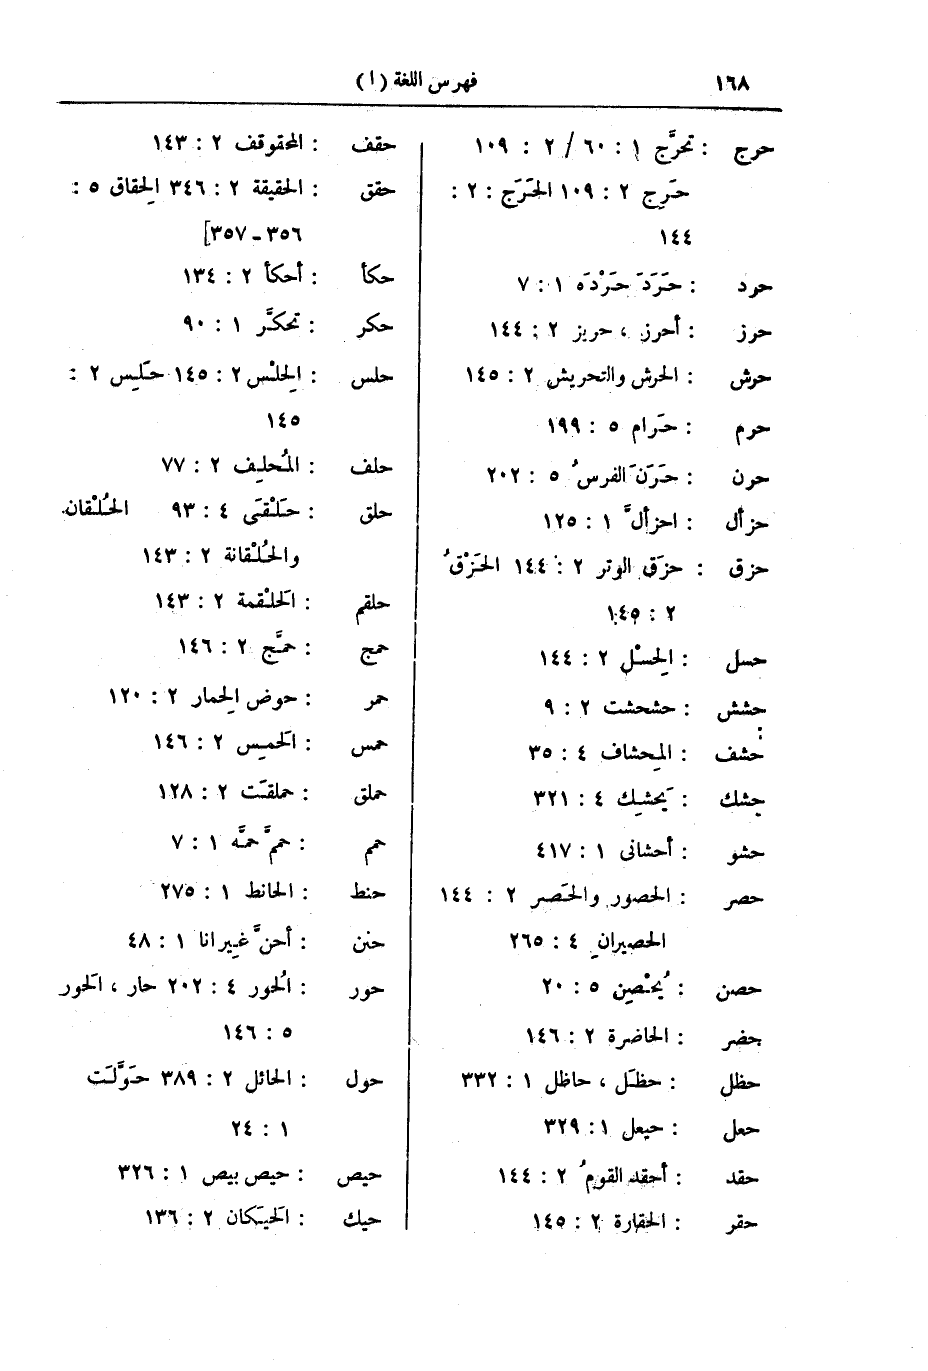 ١٦٨
فهرس اللغة (ا)
حرج : تحرَّج ١ : ٦٠ / ٢ : ١٠٩
حَرِج ٢ : ١٠٩ الحَرَج : ٢ :
١٤٤
حرد : حَرَدَ حَرْدَه ١ : ٧
حرز : أحرز ، حريز ٢ : ١٤٤
حرش : الحرش والتحريش ٢ : ١٤٥
حرم : حَرام ٥ : ١٩٩
حرن : حَرَنَ الفرسُ ٥ : ٢٠٢
حزأل : احزألَّ ١ : ١٢٥
حزق : حزَق الوتر ٢ : ١٤٤ الحَزْقُ
٢ : ١٤٥
حسل : الحِسْل ٢ : ١٤٤
حشش : حشحشت ٢ : ٩
حشف : المِحشاف ٤ : ٣٥
حشك : يَحشِك ٤ : ٣٢١
حشو : أحشانى ١ : ٤١٧
حصر : الحصور والحَصر ٢ : ١٤٤
الحصيران ٤ : ٢٦٥
حصن : يُحْصِن ٥ : ٢٠
حضر : الحاضرة ٢ : ١٤٦
حظل : حظَل ، حاظل ١ : ٣٣٢
حعل : حيعل ١ : ٣٢٩
حقد : أحقد القومُ ٢ : ١٤٤
حقر : الحقارة ٢ : ١٤٥
حقف : المحقوقف ٢ : ١٤٣
حقق : الحقيقة ٢ : ٣٤٦ الحِقاق ٥ :
٣٥٦ ـ ٣٥٧]
حكأ : أحكأ ٢ : ١٣٤
حكر : تحكَّر ١ : ٩٠
حلس : الحِلْس ٢ : ١٤٥ حَلِيس ٢ :
١٤٥
حلف : المُحلِف ٢ : ٧٧
حلق : حَلْقَى ٤ : ٩٣ الحُلْقان
والحُلْقانة ٢ : ١٤٣
حلقم : الحَلْقمة ٢ : ١٤٣
حمج : حمَّج ٢ : ١٤٦
حمر : حوض الحِمار ٢ : ١٢٠
حمس : الحَمِيس ٢ : ١٤٦
حملق : حملقَت ٢ : ١٢٨
حمم : حمَّ حمَّه ١ : ٧
حنط : الحانط ١ : ٢٧٥
حنن : أحنَّ غِيرانا ١ : ٤٨
حور : الحُور ٤ : ٢٠٢ حار ، الحَور
٥ : ١٤٦
حول : الحائل ٢ : ٣٨٩ حَوَّلَت
١ : ٢٤
حيص : حيص بيص ١ : ٣٢٦
حيك : الحَيَكان ٢ : ١٣٦